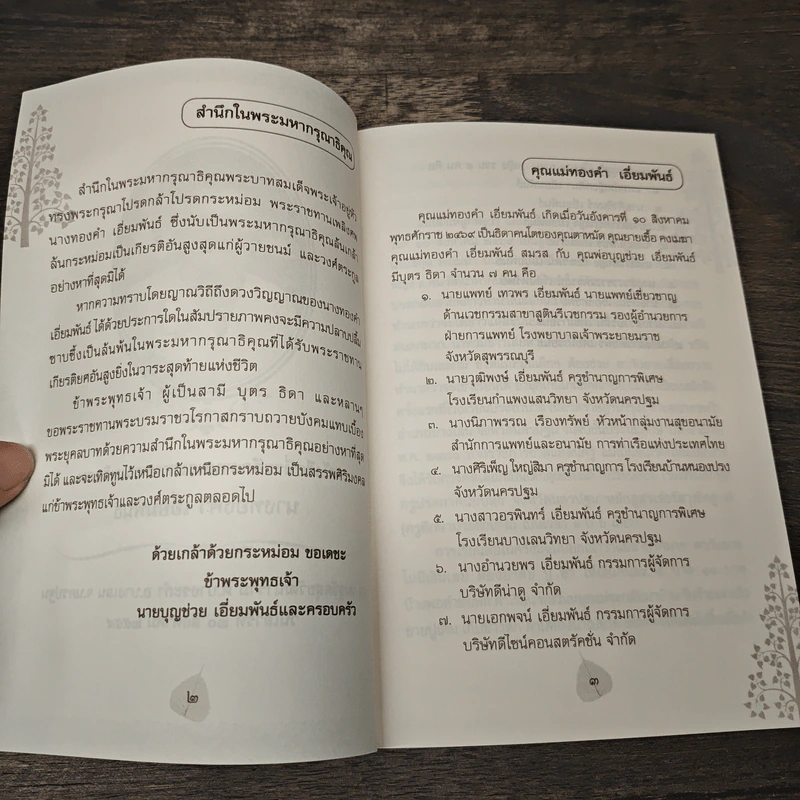 สำนึกในพระมหากรุณาธิคุณ
สำนึกในพระมหากรุณาธิคุณพระบาทสมเด็จพระเจ้าอยู่หัว
ทรงพระกรุณาโปรดกล้าโปรดกระหม่อม พระราชทานเพลิงศพ
นางทองคำ เอี่ยมพันธ์ ซึ่งนับเป็นพระมหากรุณาธิคุณล้นเกล้า
ล้นกระหม่อมเป็นเกียรติอันสูงสุดแก่ผู้วายชนม์ และวงศ์ตระกูล
อย่างหาที่สุดมิได้
หากความทราบโดยญาณวิถีถึงดวงวิญญาณของนางทองคำ
เอี่ยมพันธ์ ได้ด้วยประการใดในสัมปรายภาพคงจะมีความปลาบปลื้ม
ซาบซึ้งเป็นล้นพ้นในพระมหากรุณาธิคุณที่ได้รับพระราชทาน
เกียรติยศอันสูงยิ่งในวาระสุดท้ายแห่งชีวิต
ข้าพระพุทธเจ้า ผู้เป็นสามี บุตร ธิดา และหลานๆ
ขอพระราชทานพระบรมราชวโรกาสกราบถวายบังคมแทบเบื้อง
พระยุคลบาทด้วยความสำนึกในพระมหากรุณาธิคุณอย่างหาที่สุด
มิได้ และจะเทิดทูนไว้เหนือเกล้าเหนือกระหม่อม เป็นสรรพศิริมงคล
แก่ข้าพระพุทธเจ้าและวงศ์ตระกูลตลอดไป
ด้วยเกล้าด้วยกระหม่อม ขอเดชะ
ข้าพระพุทธเจ้า
นายบุญช่วย เอี่ยมพันธ์และครอบครัว
๒
คุณแม่ทองคำ เอี่ยมพันธ์
คุณแม่ทองคำ เอี่ยมพันธ์ เกิดเมื่อวันอังคารที่ ๑๐ สิงหาคม
พุทธศักราช ๒๔๖๙ เป็นธิดาคนโตของคุณตาหมัด คุณยายเชื้อ คงเมฆา
คุณแม่ทองคำ เอี่ยมพันธ์ สมรส กับ คุณพ่อบุญช่วย เอี่ยมพันธ์
มีบุตร ธิดา จำนวน ๗ คน คือ
๑. นายแพทย์ เทวพร เอี่ยมพันธ์ นายแพทย์เชี่ยวชาญ
ด้านเวชกรรมสาขาสูตินรีเวชกรรม รองผู้อำนวยการ
ฝ่ายการแพทย์ โรงพยาบาลเจ้าพระยายมราช
จังหวัดสุพรรณบุรี
๒. นายวุฒิพงษ์ เอี่ยมพันธ์ ครูชำนาญการพิเศษ
โรงเรียนกำแพงแสนวิทยา จังหวัดนครปฐม
๓. นางนิภาพรรณ เรืองทรัพย์ หัวหน้ากลุ่มงานสุขอนามัย
สำนักการแพทย์และอนามัย การท่าเรือแห่งประเทศไทย
๔. นางศิริเพ็ญ ใหญ่สีมา ครูชำนาญการ โรงเรียนบ้านหนองปรง
จังหวัดนครปฐม
๕. นางสาวอรพินทร์ เอี่ยมพันธ์ ครูชำนาญการพิเศษ
โรงเรียนบางเลนวิทยา จังหวัดนครปฐม
๖. นางอำนวยพร เอี่ยมพันธ์ กรรมการผู้จัดการ
บริษัทดีน่าดู จำกัด
๗. นายเอกพจน์ เอี่ยมพันธ์ กรรมการผู้จัดการ
บริษัทดีไซน์คอนสตรัคชั่น จำกัด
๓